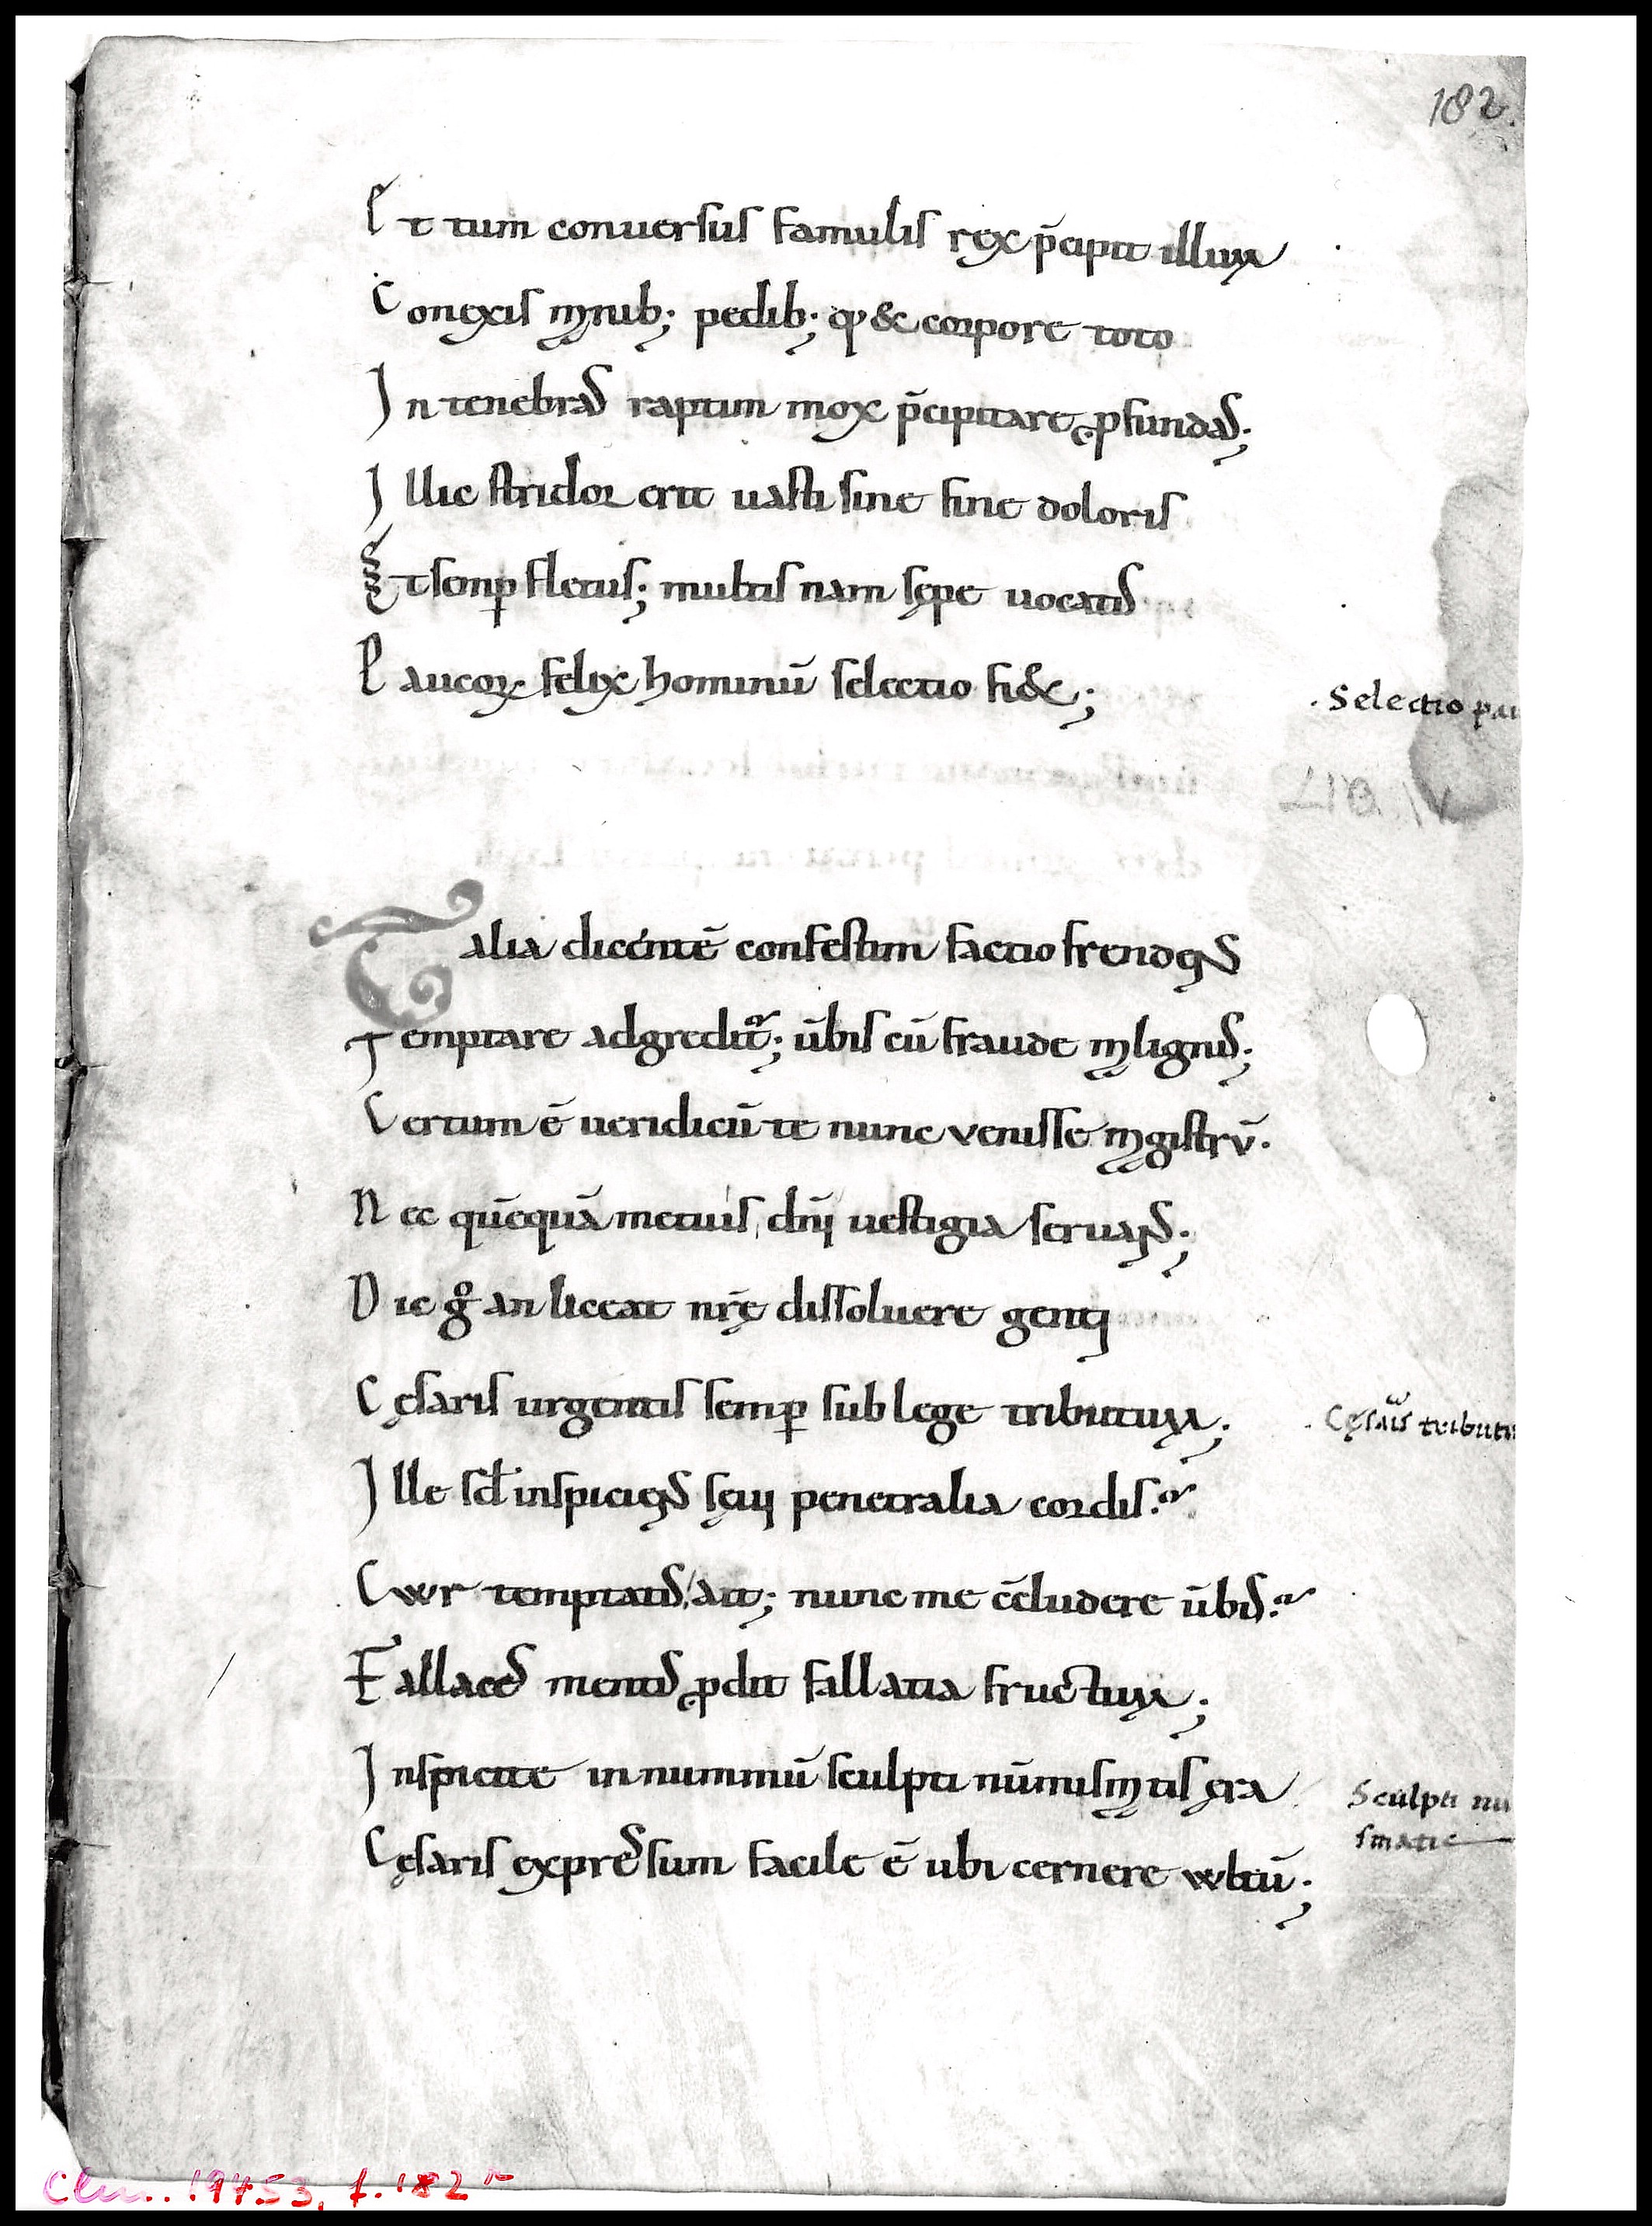 182.
Et tum conuersus famulis rex p̄cipit illum
Conexis manib; pedib; q; & corpore toto
In tenebras raptim mox p̄cipitare ꝓfundas;
Illic stridor erit uasti sine fine doloris
Et semꝑ fletus; multis nam sępe uocatis
Paucoꝝ felix hominū selectio fi&;
. Selectio pau
Talia dicentē confestim factio frendens
Temptare adgreditᷣ; ūbis cū fraude malignis;
Certum ē ueridicū te nunc venisse magistrū.
Nec quēquā metuis, dn̄i uestigia seruans;
Dic gͦ an liceat nr̄ę dissoluere genti
Cęsaris urgentis semꝑ sub lege tributum;
. Cęsaris tributu
Ille sꝫ inspiciens sęui penetralia cordis.
Cur temptatis, ait; nunc me c̄cludere ūbis.
Fallaces mentis ꝓdit fallatia fructum;
Inspicite in nummū sculpti nūmismatis ęra
Sculpti nu
smatis
Cęsaris expressum facile ē ubi cernere vultū;
Clm. 19453, f. 182ʳ